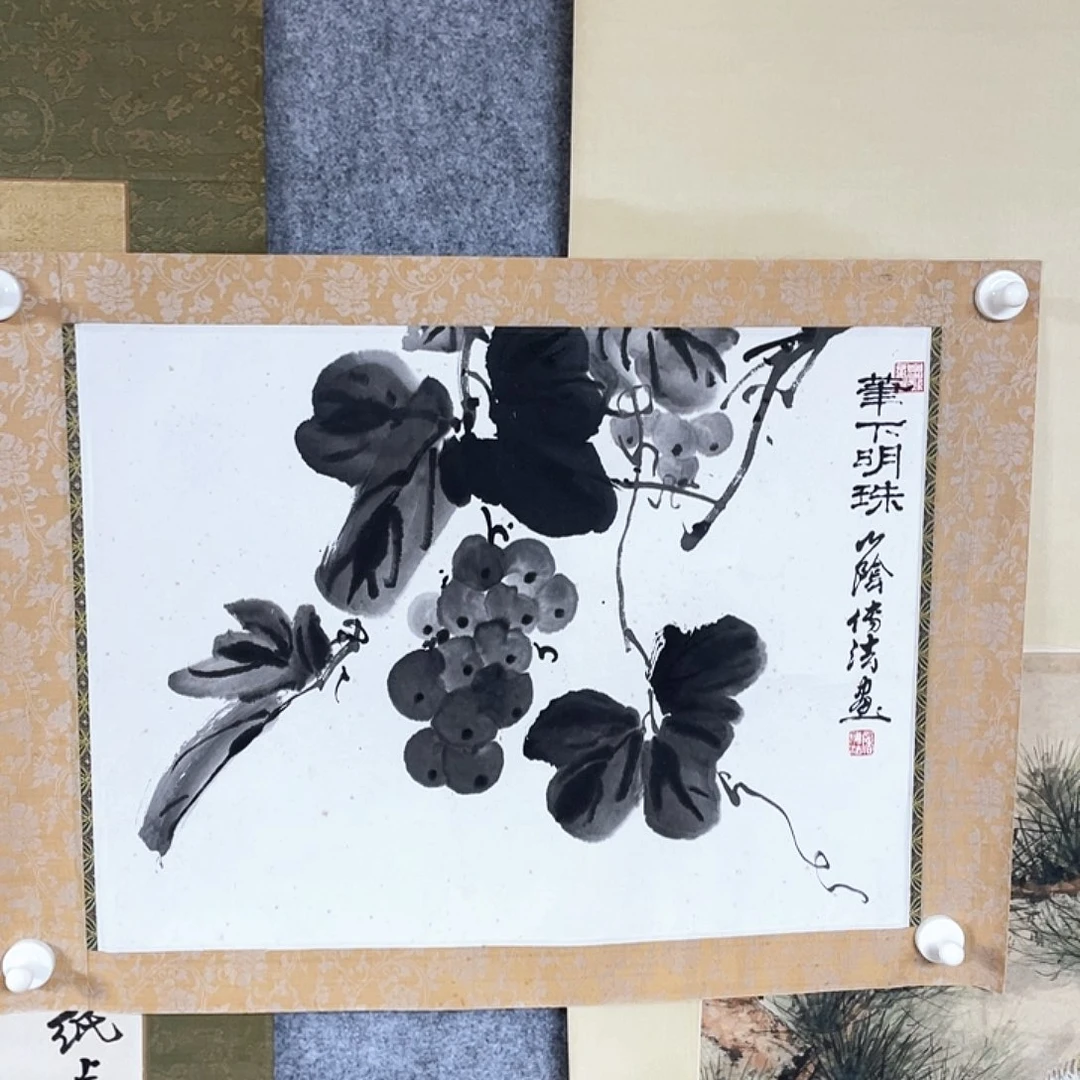 筆下明珠
山陰倩法畫
纸上